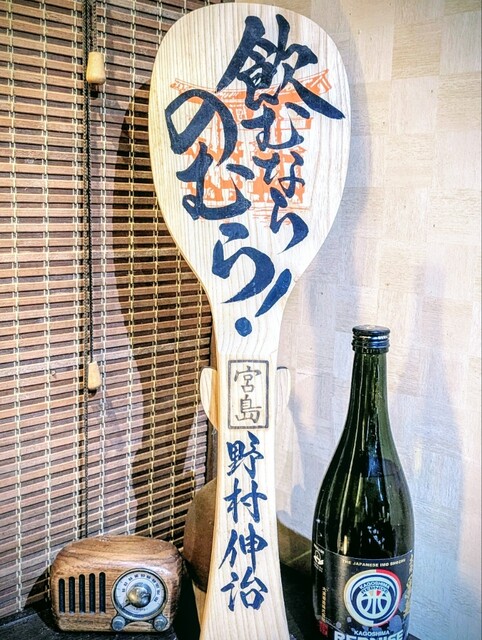 飲むなら
のむら!
宮島
野村伸治
THE JAPANESE IMO SHOCHU
KAGOSHIMA
REBNISE
KAGOSHIMA
REBNISE